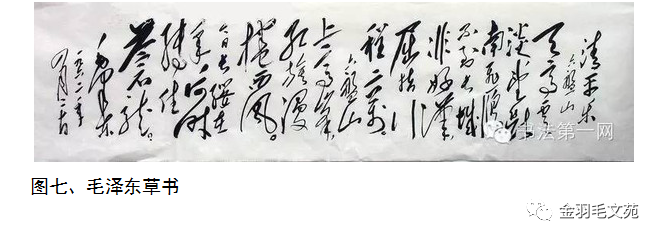 清平乐
六盘山
天高雲
淡望断
南飛雁
不到长城
非好漢
屈指行
程二万
六盘山
上高峯
红旗漫
捲西风。
今日长缨在
手何时
缚住
蒼龙。
毛泽东
一九六一年
书法第一网
图七、毛泽东草书
金羽毛文苑